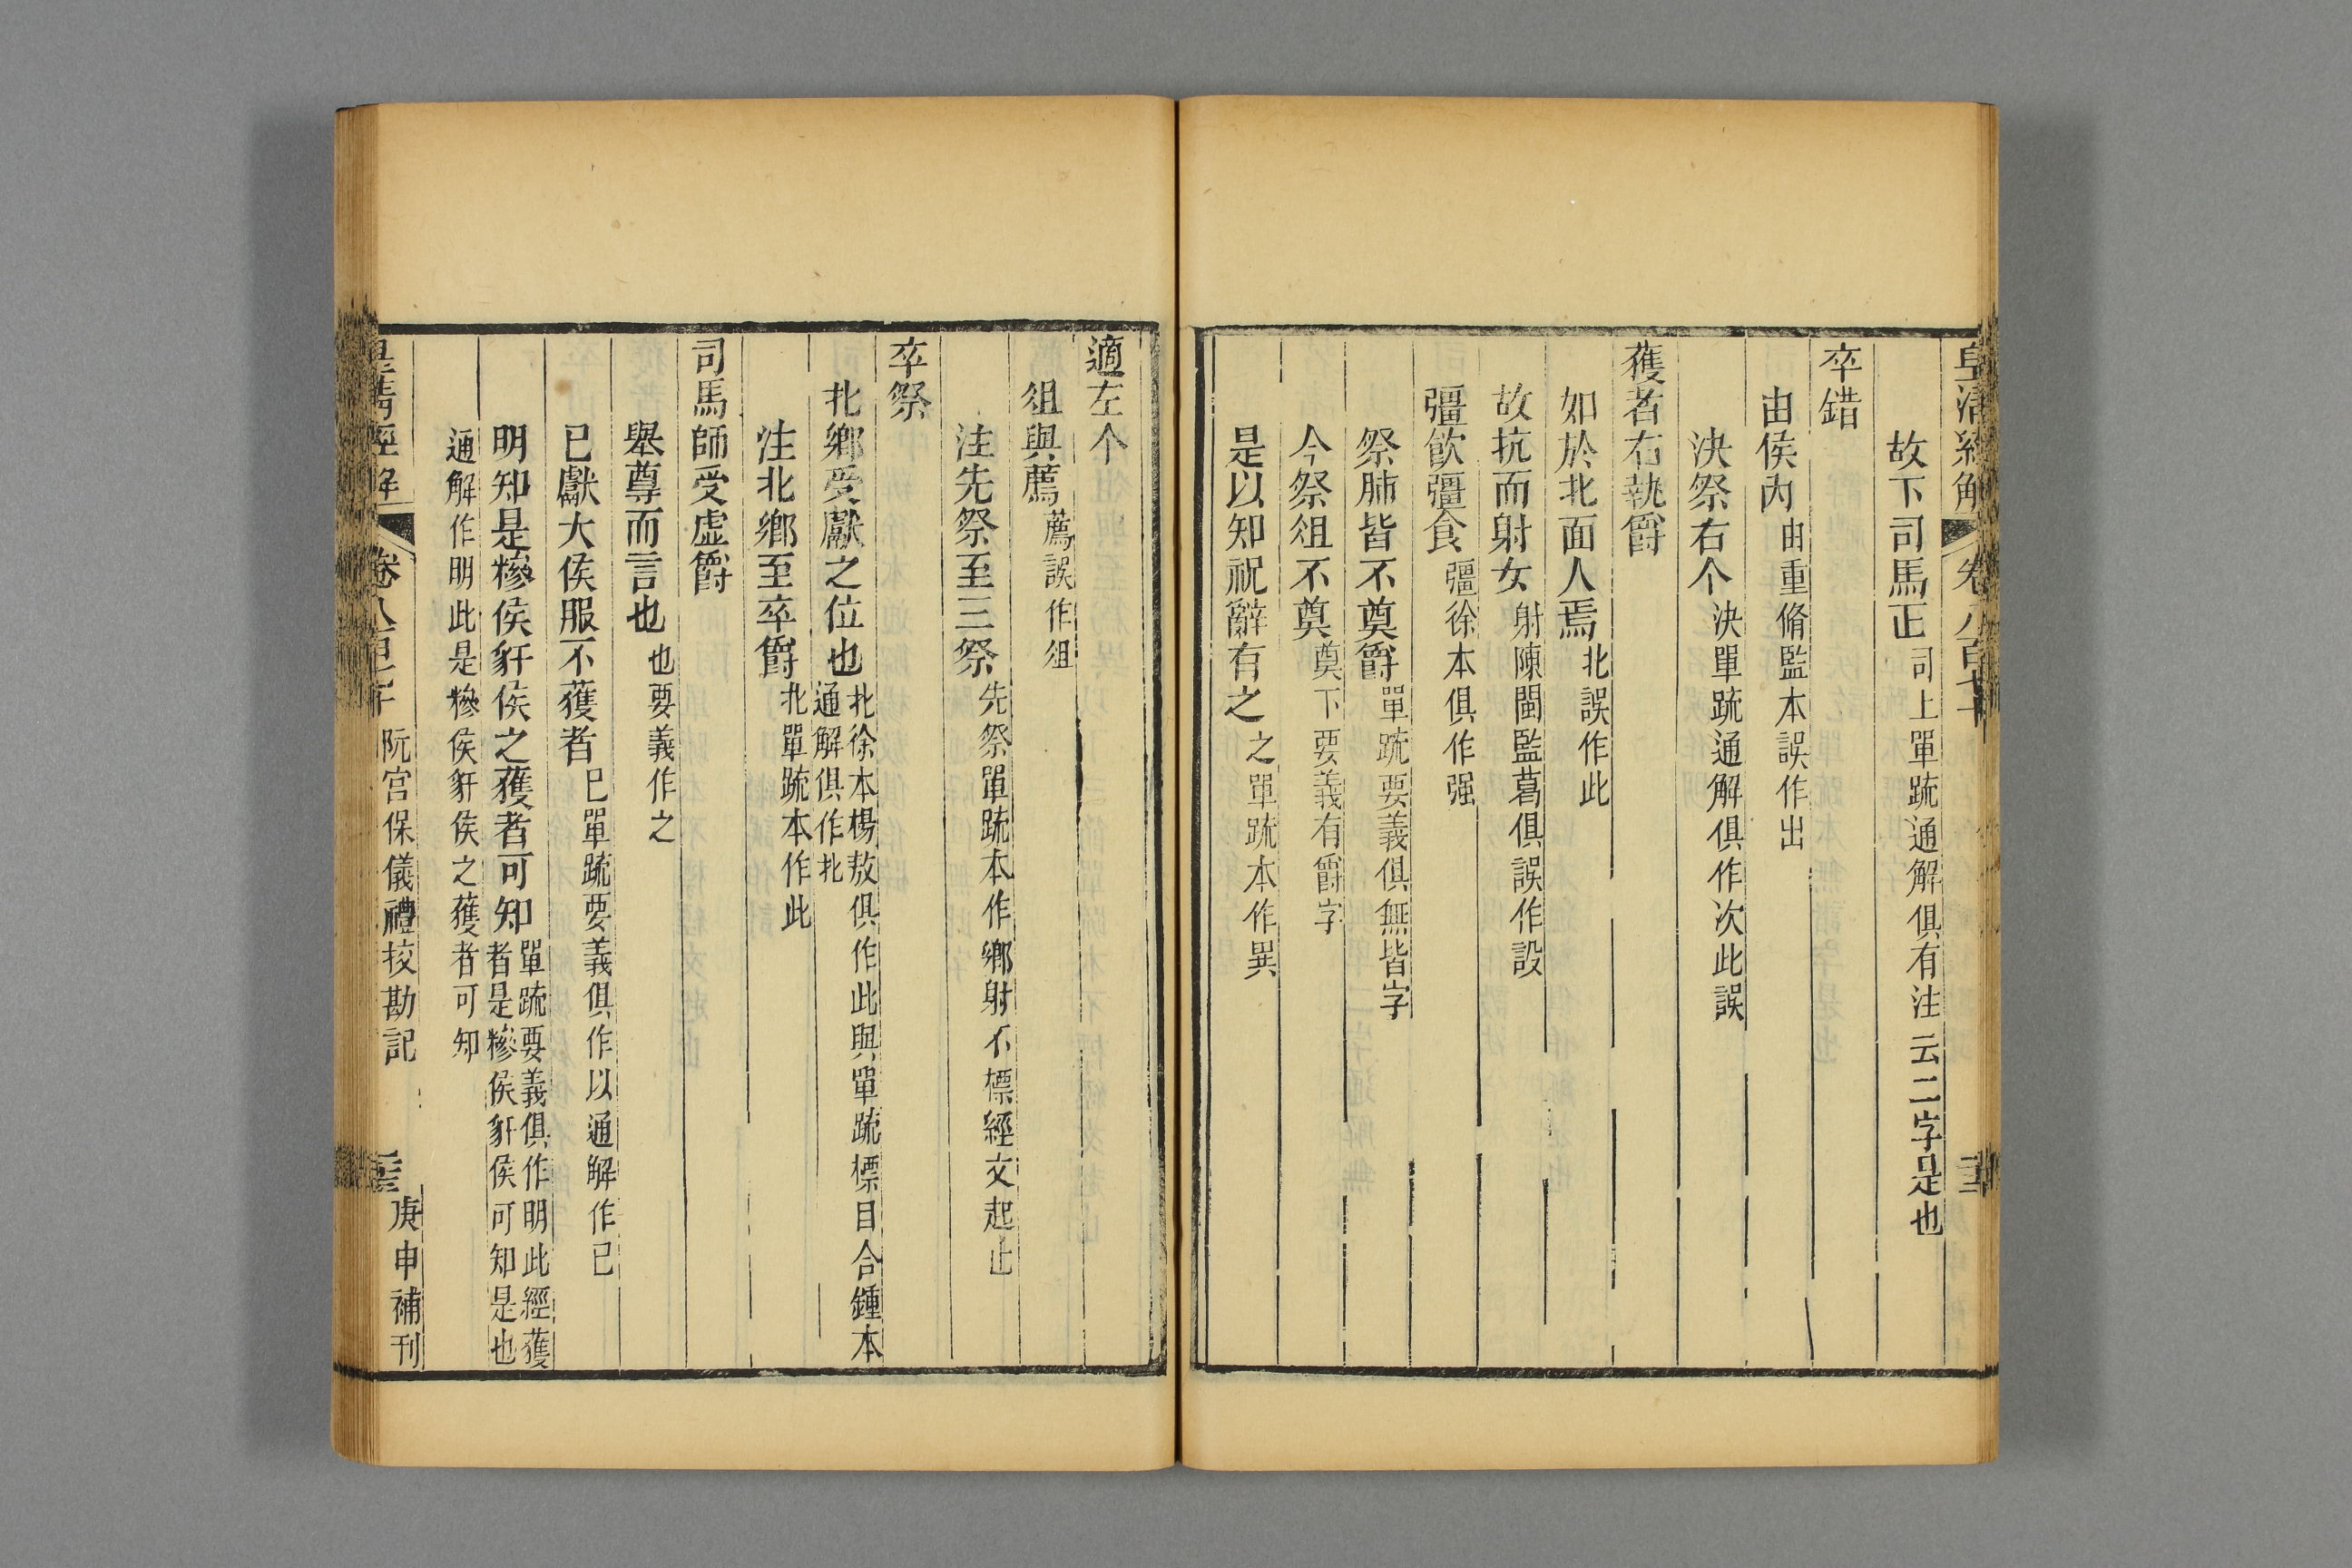 皇清經解 卷八百七十
故下司馬正司上單疏通解俱有注云二字是也
卒錯
由侯內由重脩監本誤作出
決祭右个決單疏通解俱作次此誤
獲者右執爵
如於北面人焉北誤作此
故抗而射女射陳閩監葛俱誤作設
彊飲彊食彊徐本俱作强
祭肺皆不奠爵單疏要義俱無皆字
今祭俎不奠奠下要義有爵字
是以知祝辭有之之單疏本作異
適左个
俎與薦薦誤作俎
注先祭至三祭先祭單疏本作鄉射不標經文起止
卒祭
北鄉受獻之位也北徐本楊敖俱作此與單疏標目合鍾本
通解俱作北
注北鄉至卒爵北單疏本作此
司馬師受虛爵
舉尊而言也也要義作之
已獻大侯服不獲者已單疏要義俱作以通解作已
明知是糝侯豻侯之獲者可知單疏要義俱作明此經獲
者是糝侯豻侯可知是也
通解作明此是糝侯豻侯之獲者可知
皇清經解 卷八百七十 阮宮保儀禮挍勘記 庚申補刊